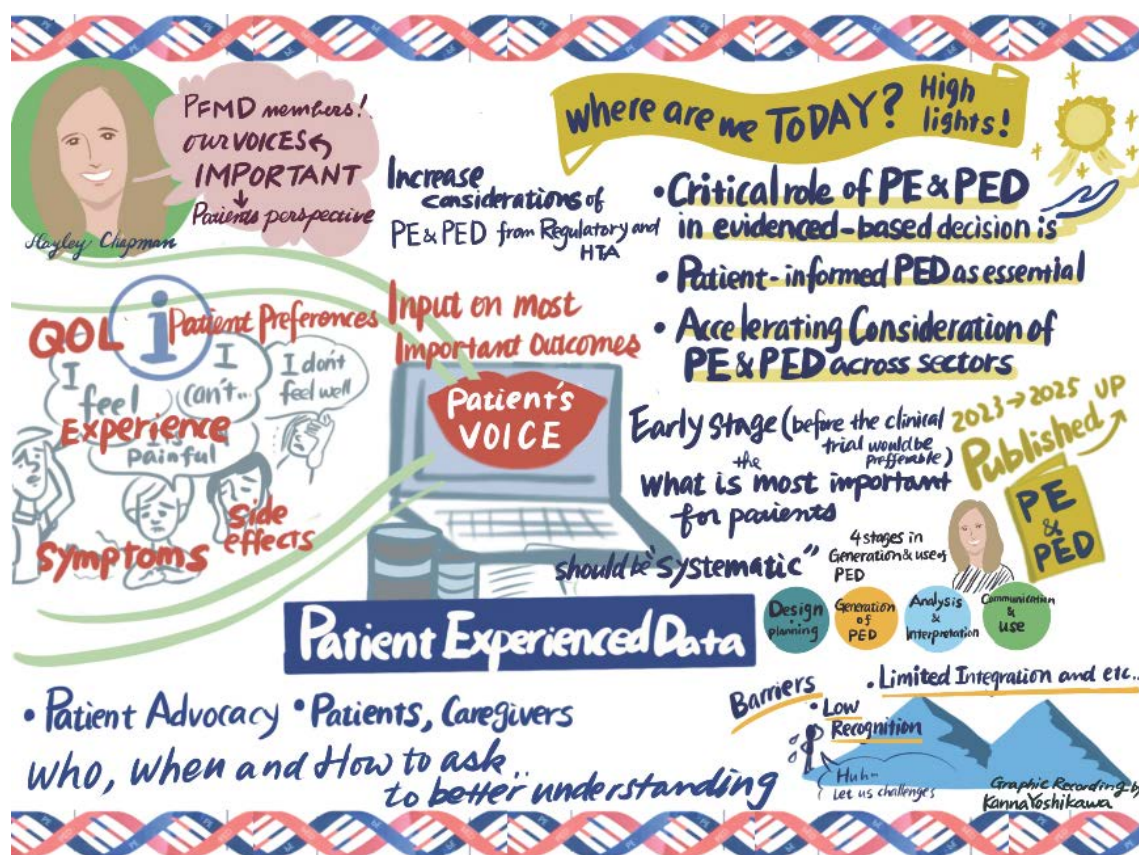 PFMD members!
our VOICES
IMPORTANT
Patients perspective
Hayley Chapman
Where are we TODAY?
High
lights!
Increase
considerations of
PE & PED from Regulatory and
HTA
• Critical role of PE & PED
in evidenced-based decision is
• Patient-informed PED as essential
• Accelerating Consideration of
PE & PED across sectors
QOL
i
Patient Preferences
I
feel
I
can't...
I don't
feel well
Experience
painful
Side
effects
Symptoms
Input on most
Important Outcomes
Patient's
VOICE
Early stage (before the clinical
trial would be
prefferable)
the
what is most important
for patients
should be "systematic"
2023→2025 UP
Published
PE
&
PED
4 stages in
Generation & use of
PED
Design
planning
Generation
of
PED
Analysis
&
Interpretation
Communication
&
use
Patient Experienced Data
• Patient Advocacy • Patients, Caregivers
Who, When and How to ask..
to better understanding
Barriers
• Limited Integration and etc...
• Low
Recognition
Huh~
Let us challenges
Graphic Recording by
Kanna Yoshikawa